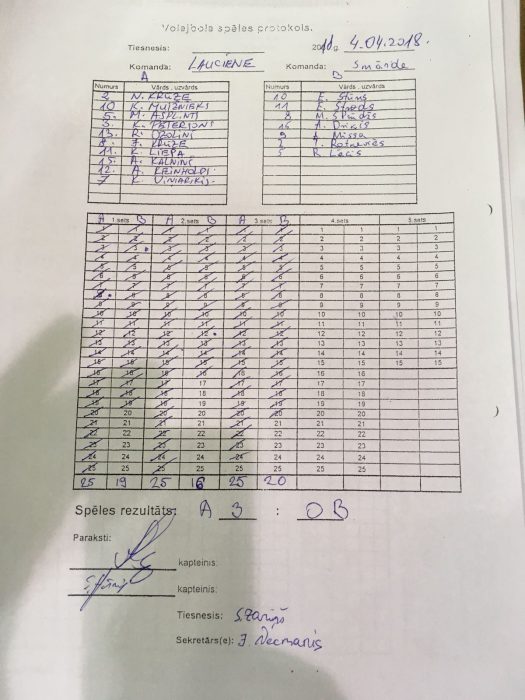 Volejbola spēles protokols.
Tiesnesis: 2018g. 4.04.2018.
Komanda: LAUCIENE Komanda: Smārde
A B
Numurs Vārds, uzvārds Numurs Vārds, uzvārds
2 N. KRŪZE 10
10 K. MUIŽNIEKS 11
5. M. 8 M.
3. K. PĒTERSONS 16
13. R. OZOLIŅŠ 9 Missa
8. KRŪZE
11. K. LIEPA 5 R. Lācis
15. A. KALNIŅŠ
12. A. REINHOLDS
7 K. VINIARSKIS
A 1.sets B A 2.sets B A 3.sets B 4.sets 5.sets
1 1 1 1 1 1 1 1 1 1
2 2 2 2 2 2 2 2 2 2
3 3 3 3 3 3 3 3 3 3
4 4 4 4 4 4 4 4 4 4
5 5 5 5 5 5 5 5 5 5
6 6 6 6 6 6 6 6 6 6
7 7 7 7 7 7 7 7 7 7
8 8 8 8 8 8 8 8 8 8
9 9 9 9 9 9 9 9 9 9
10 10 10 10 10 10 10 10 10 10
11 11 11 11 11 11 11 11 11 11
12 12 12 12 12 12 12 12 12 12
13 13 13 13 13 13 13 13 13 13
14 14 14 14 14 14 14 14 14 14
15 15 15 15 15 15 15 15 15 15
16 16 16 16 16 16 16 16
17 17 17 17 17 17 17 17
18 18 18 18 18 18 18 18
19 19 19 19 19 19 19 19
20 20 20 20 20 20 20 20
21 21 21 21 21 21 21 21
22 22 22 22 22 22 22 22
23 23 23 23 23 23 23 23
24 24 24 24 24 24 24 24
25 25 25 25 25 25 25 25
25 19 25 16 25 20
Spēles rezultāts: A 3 : 0 B
Paraksti:
kapteinis:
kapteinis:
Tiesnesis: S. Zariņš
Sekretārs(e): J. Necmanis